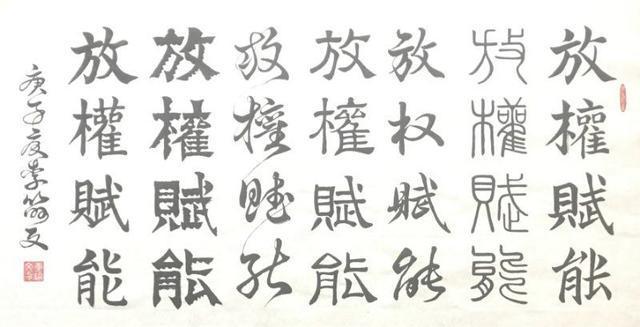 放權賦能
放權賦能
放权賦能
放權賦能
放權賦能
放權賦能
放權賦能
庚子夏李文